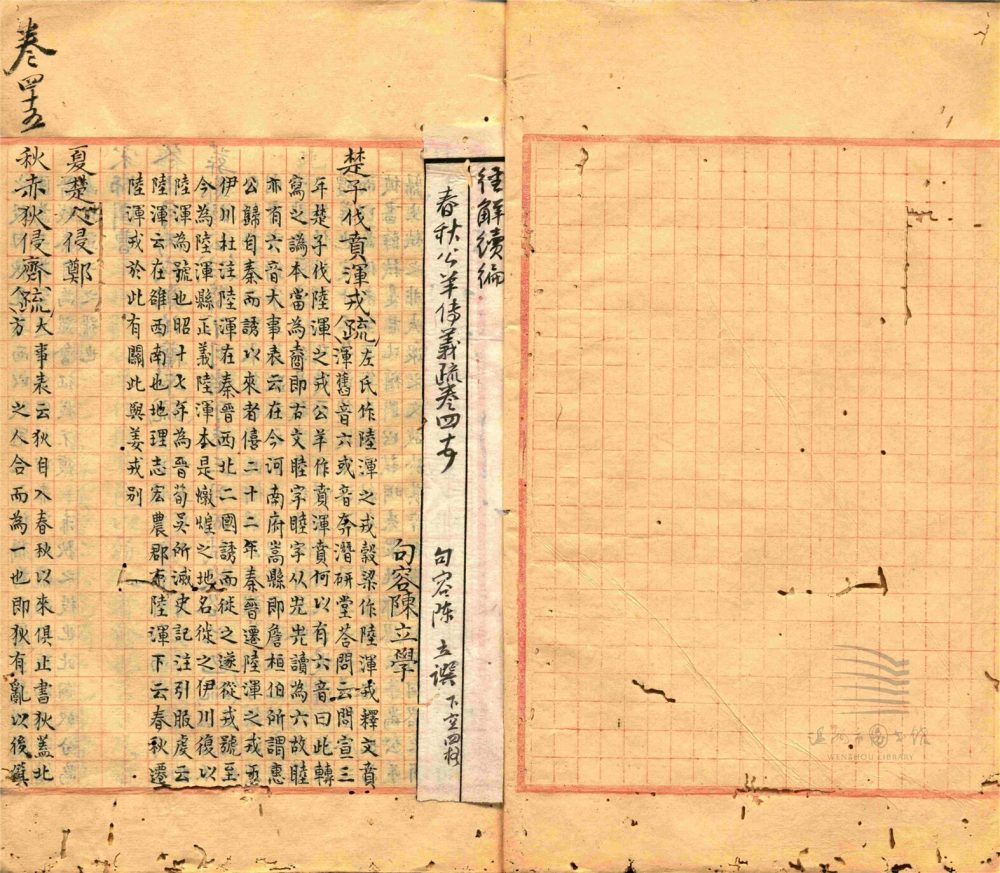 卷四十五
經解續編
春秋公羊傳義疏卷四十五
句容陳立譔 下空四格
句容陳立學
楚子伐賁渾戎疏 左氏作陸渾之戎穀梁作陸渾戎釋文賁
渾舊音六或音奔潛研堂荅問云問宣三
年楚子伐陸渾之戎公羊作賁渾賁何以有六音曰此轉
寫之譌本當為𧶠即古文睦字睦字从圥圥讀為六故睦
亦有六音大事表云在今河南府嵩縣即詹桓伯所謂惠
公歸自秦而誘以來者僖二十二年秦晉遷陸渾之戎于
伊川杜注陸渾在秦晉西北二國誘而徙之遂從戎號至
今為陸渾縣正義陸渾本是燉煌之地名徙之伊川復以
陸渾為號也昭十七年為晉荀吳所滅史記注引服虔云
陸渾云在雒西南也地理志宏農郡陸渾下云春秋遷
陸渾戎於此有關此與姜戎別
夏楚人侵鄭
秋赤狄侵齊疏 大事表云狄自入春秋以來俱止書狄蓋北
方西之人合而為一也即狄有亂以後猶
溫州市圖書館
WENZHOU LIBRARY